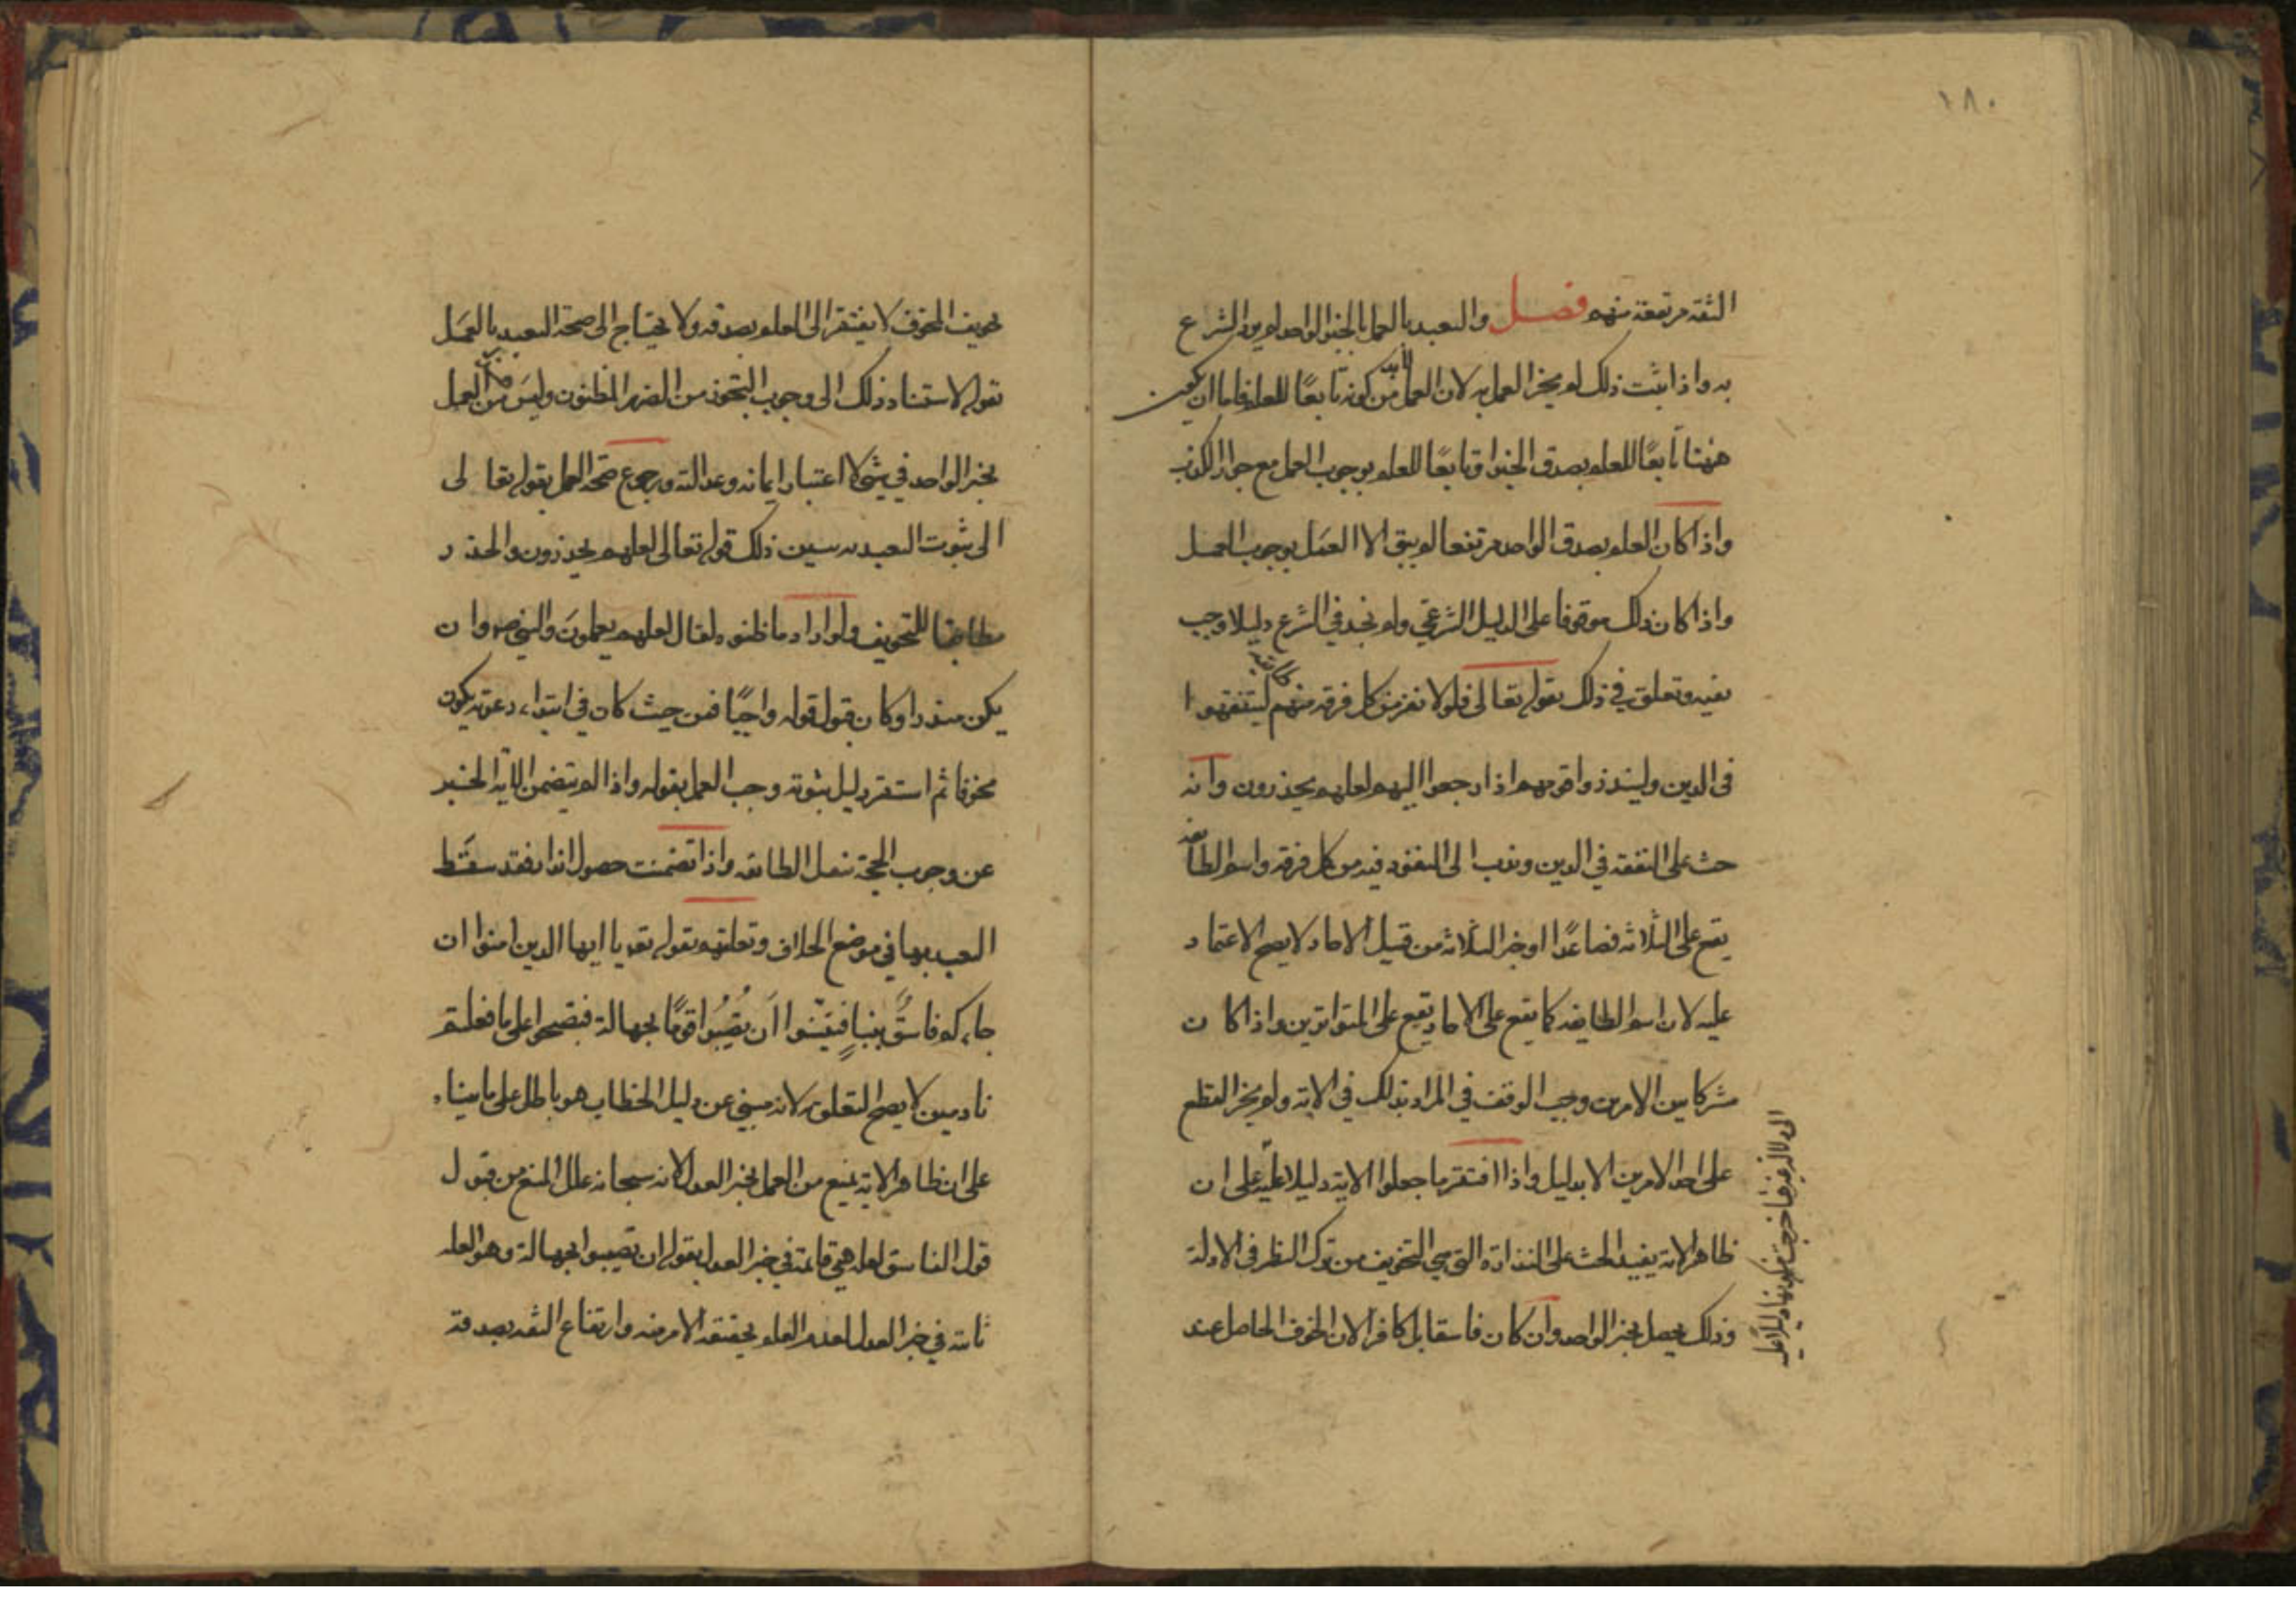 ١٨٠
الثقة مرتفعة منهم فصل والتعبد بالعمل بالخبر الواحد لم يرد الشرع
به واذا ثبت ذلك لم يجز العمل به لان العمل لابد من كونه تابعًا للعلم فاما ان يكون
ههنا تابعًا للعلم بصدق الخبر او تابعًا للعلم بوجوب العمل مع جواز الكذب
واذا كان العلم بصدق الواحد مرتفعا لم يبق الا العمل بوجوب العمل
واذا كان ذلك موقوفا على الدليل الشرعي ولم نجد في الشرع دليلا وجب
نفيه وتعلق في ذلك بقوله تعالى فلولا نفر من كل فرقة منهم طائفة ليتفقهوا
في الدين ولينذروا قومهم اذا رجعوا اليهم لعلهم يحذرون وانه
حث على التفقه في الدين وندب الى النفور فيه من كل فرقة واسم الطائفة
يقع على الثلاثة فصاعدًا او خبر الثلاثة من قبيل الاحاد لا يصح الاعتماد
عليه لان اسم الطايفة كما يقع على الاحاد يقع على المتواترين واذا كان
مشتركا بين الامرين وجب الوقف في المراد بذلك في الاية ولم يجز القطع
على احد الامرين الا بدليل واذا افتقر ما جعلوا الاية دليلا عليه على ان
ظاهر الاية يفيد الحث على النذارة التي هي التخويف من ترك النظر في الادلة
وذلك يحصل بخبر الواحد وان كان فاسقا بل كافرا لان الخوف الحاصل عند
الى دلالة غيرها خرجت من كونها دليلا عليه
تخويف المخوف لا يفتقر الى العلم بصدقه ولا يحتاج الى صحة التعبد بالعمل
بقوله لاستناد ذلك الى وجوب التحرز من الضرر المظنون وليس من العمل
بخبر الواحد في شي لاعتبار ايمانه وعدالته ورجوع صحة العمل بقوله تعالى
الى ثبوت التعبد به يبين ذلك قوله تعالى لعلهم يحذرون والحذر
مطابقا للتخويف ولو اراد ما ظنوه لقال لعلهم يعملون والنبي ص وان
يكن منذرا وكان قبول قوله واجبًا فمن حيث كان في ابتداء دعوته يكون
مخوفا ثم استقر دليل نبوته وجب العمل بقوله واذا لم يتضمن الاية الخبر
عن وجوب الحجة بنقل الطائفة واذا تضمنت حصول انذار فقد سقط
التعبد بها في موضع الخلاف وتعلقهم بقوله تعالى يا ايها الذين امنوا ان
جاءكم فاسقٌ بنباٍ فتبيّنوا أن تُصيبُوا قومًا بجهالة فتصبحوا على ما فعلتم
نادمين لا يصح التعلق به لانه مبني عن دليل الخطاب هو باطل على ما بيناه
على ان ظاهر الاية يمنع من العمل بخبر العدل لانه سبحانه علل المنع من قبول
قول الفاسق لعلة هي قائمة في خبر العدل بقوله ان تصيبوا بجهالة وهو العلة
ثابتة في خبر العدل لعدم العلم بحقيقة الامر منه وارتفاع الثقة بصدقه